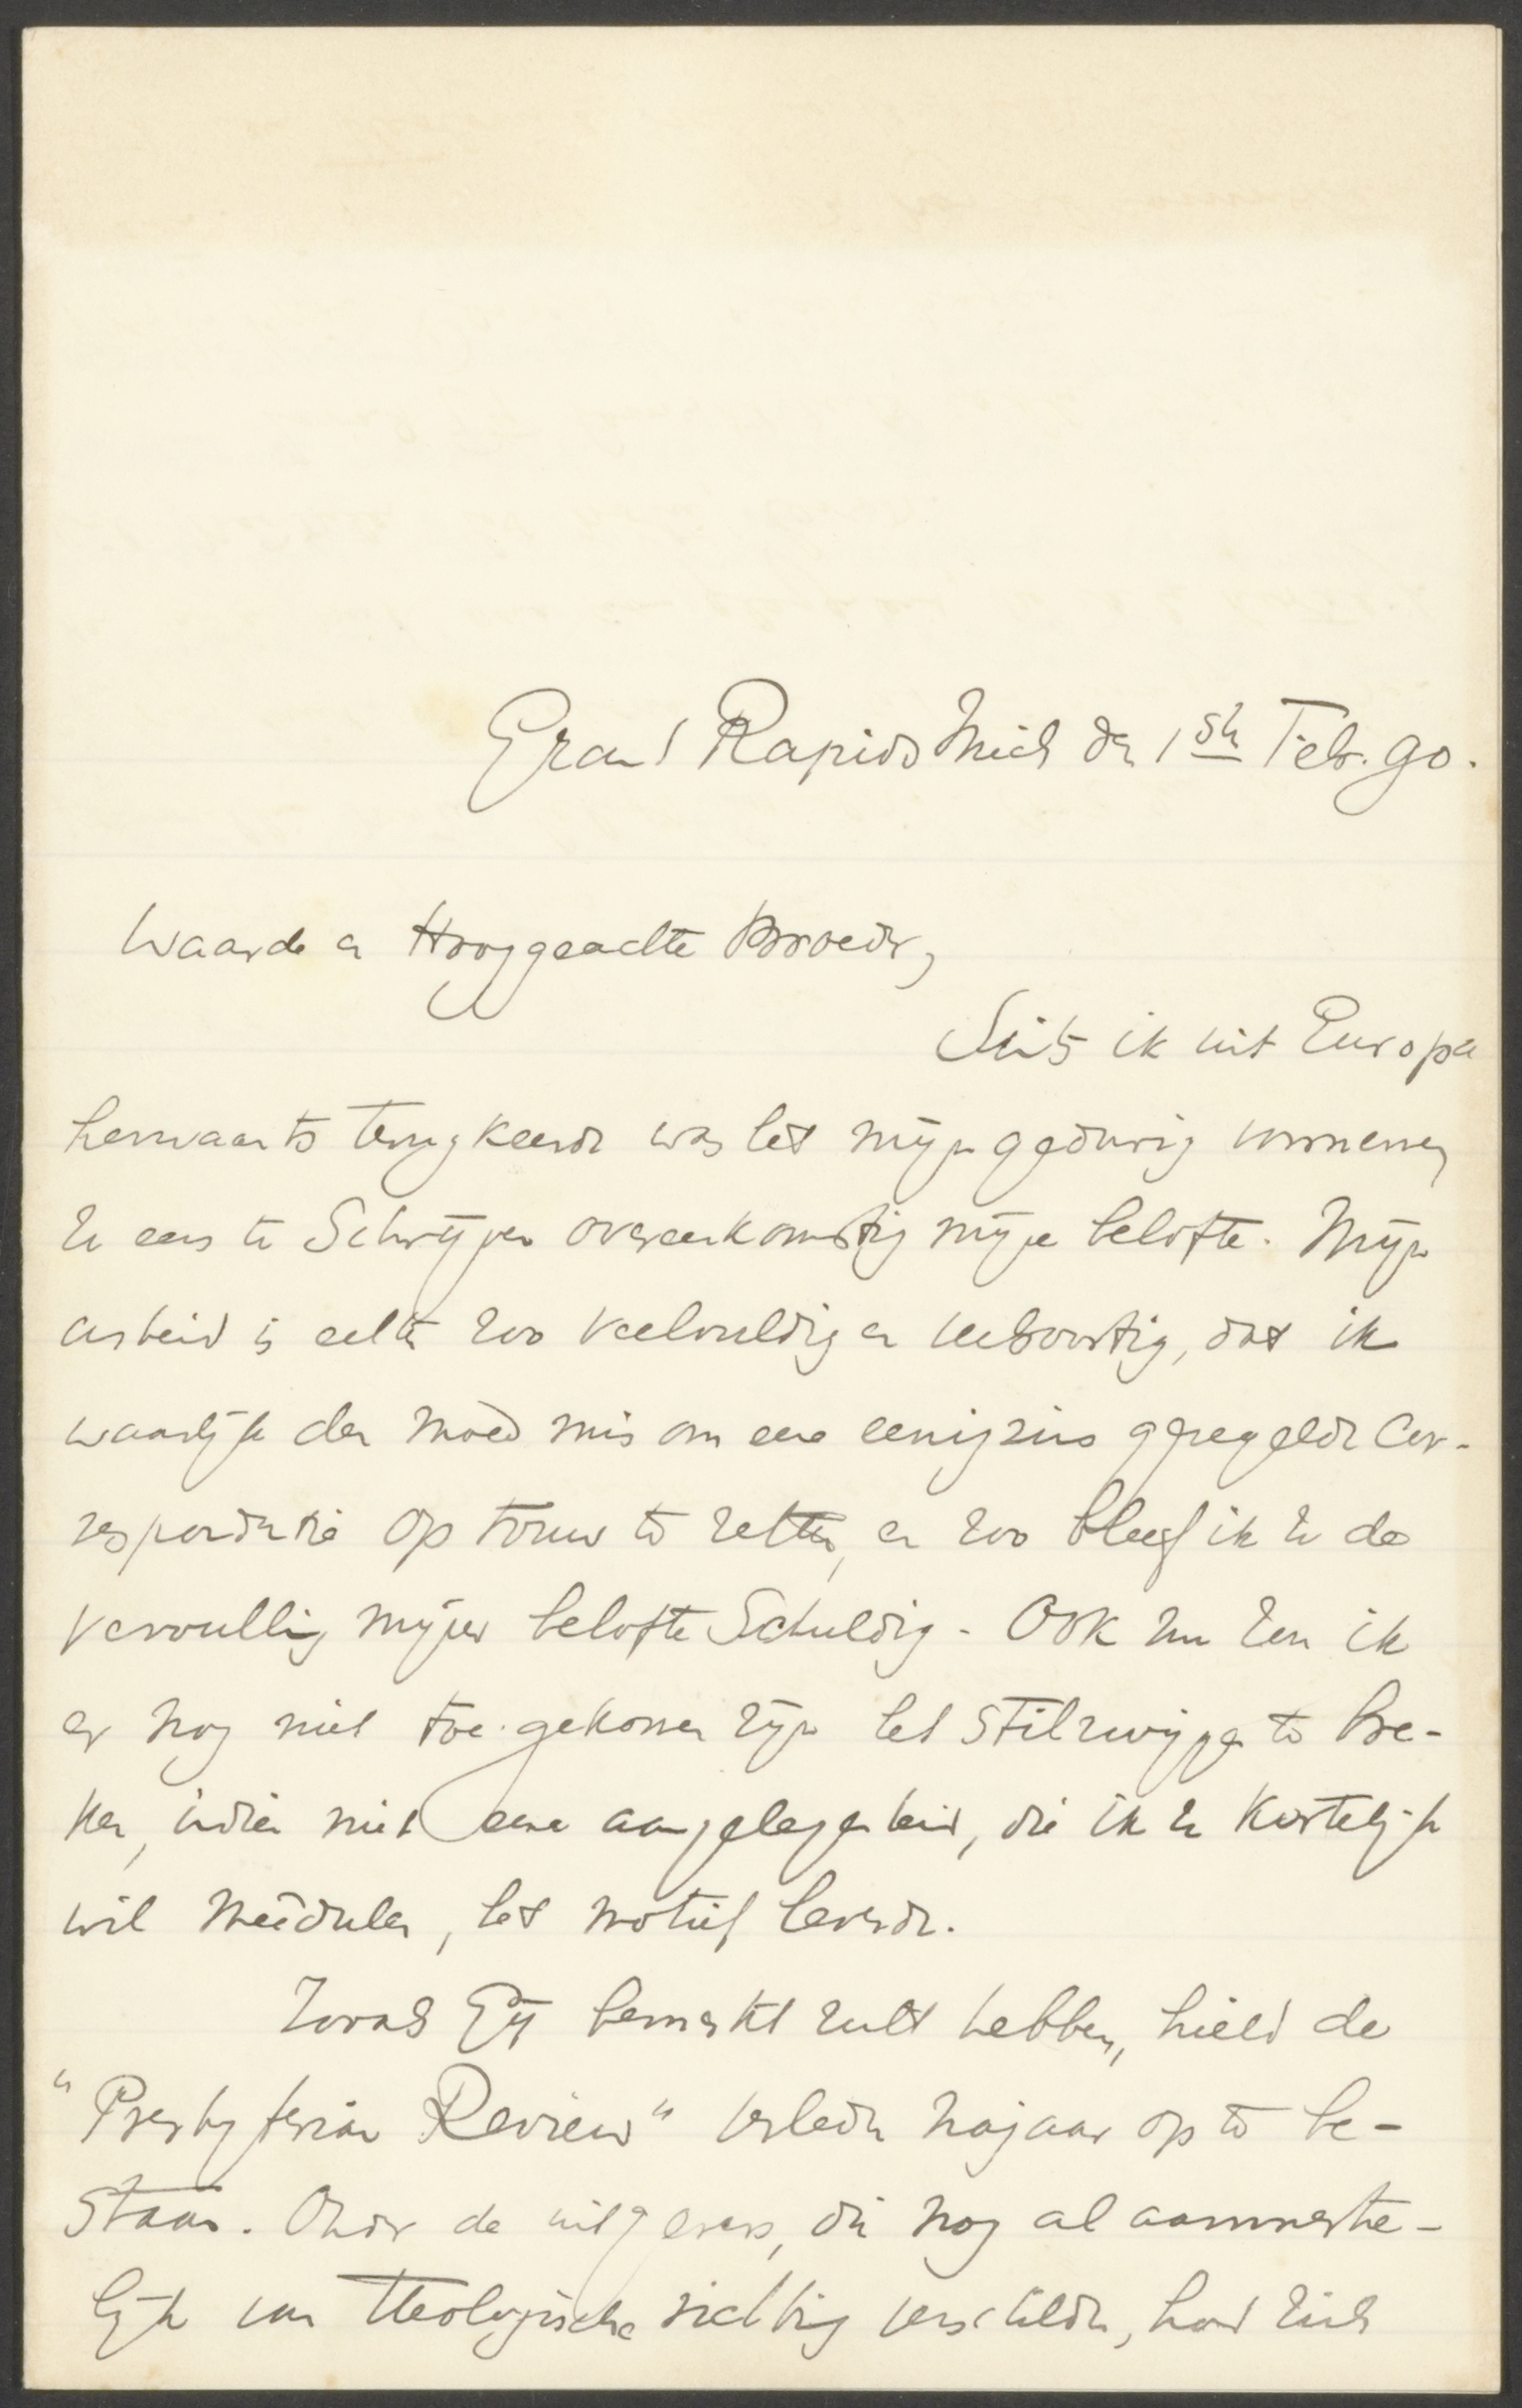 Grand Rapids Mich den 1sten Feb. 90.
Waarde en Hooggeachte Broeder,
Sints ik uit Europa
herwaarts terugkeerde was het mijn gedurig voornemen
U eens te schrijven overeenkomstig mijne belofte. Mijn
arbeid is echter zoo veelvuldig en veelsoortig, dat ik
waarlijk den moed mis om eene eenigzins geregelde Cor-
respondentie op touw te zetten, en zoo bleef ik U de
vervulling mijner belofte schuldig. Ook nu zou ik
er nog niet toe gekomen zijn het stilzwijgen te bre-
ken, indien niet eene aangelegenheid, die ik U kortelijk
wil meêdeelen, het motief leverde.
Zooals Gij bemerkt zult hebben, hield de
"Presbyterian Review" verleden najaar op te be-
staan. Onder de uitgevers, die nog al aanmerke-
lijk van theologische richting verschilden, had zich